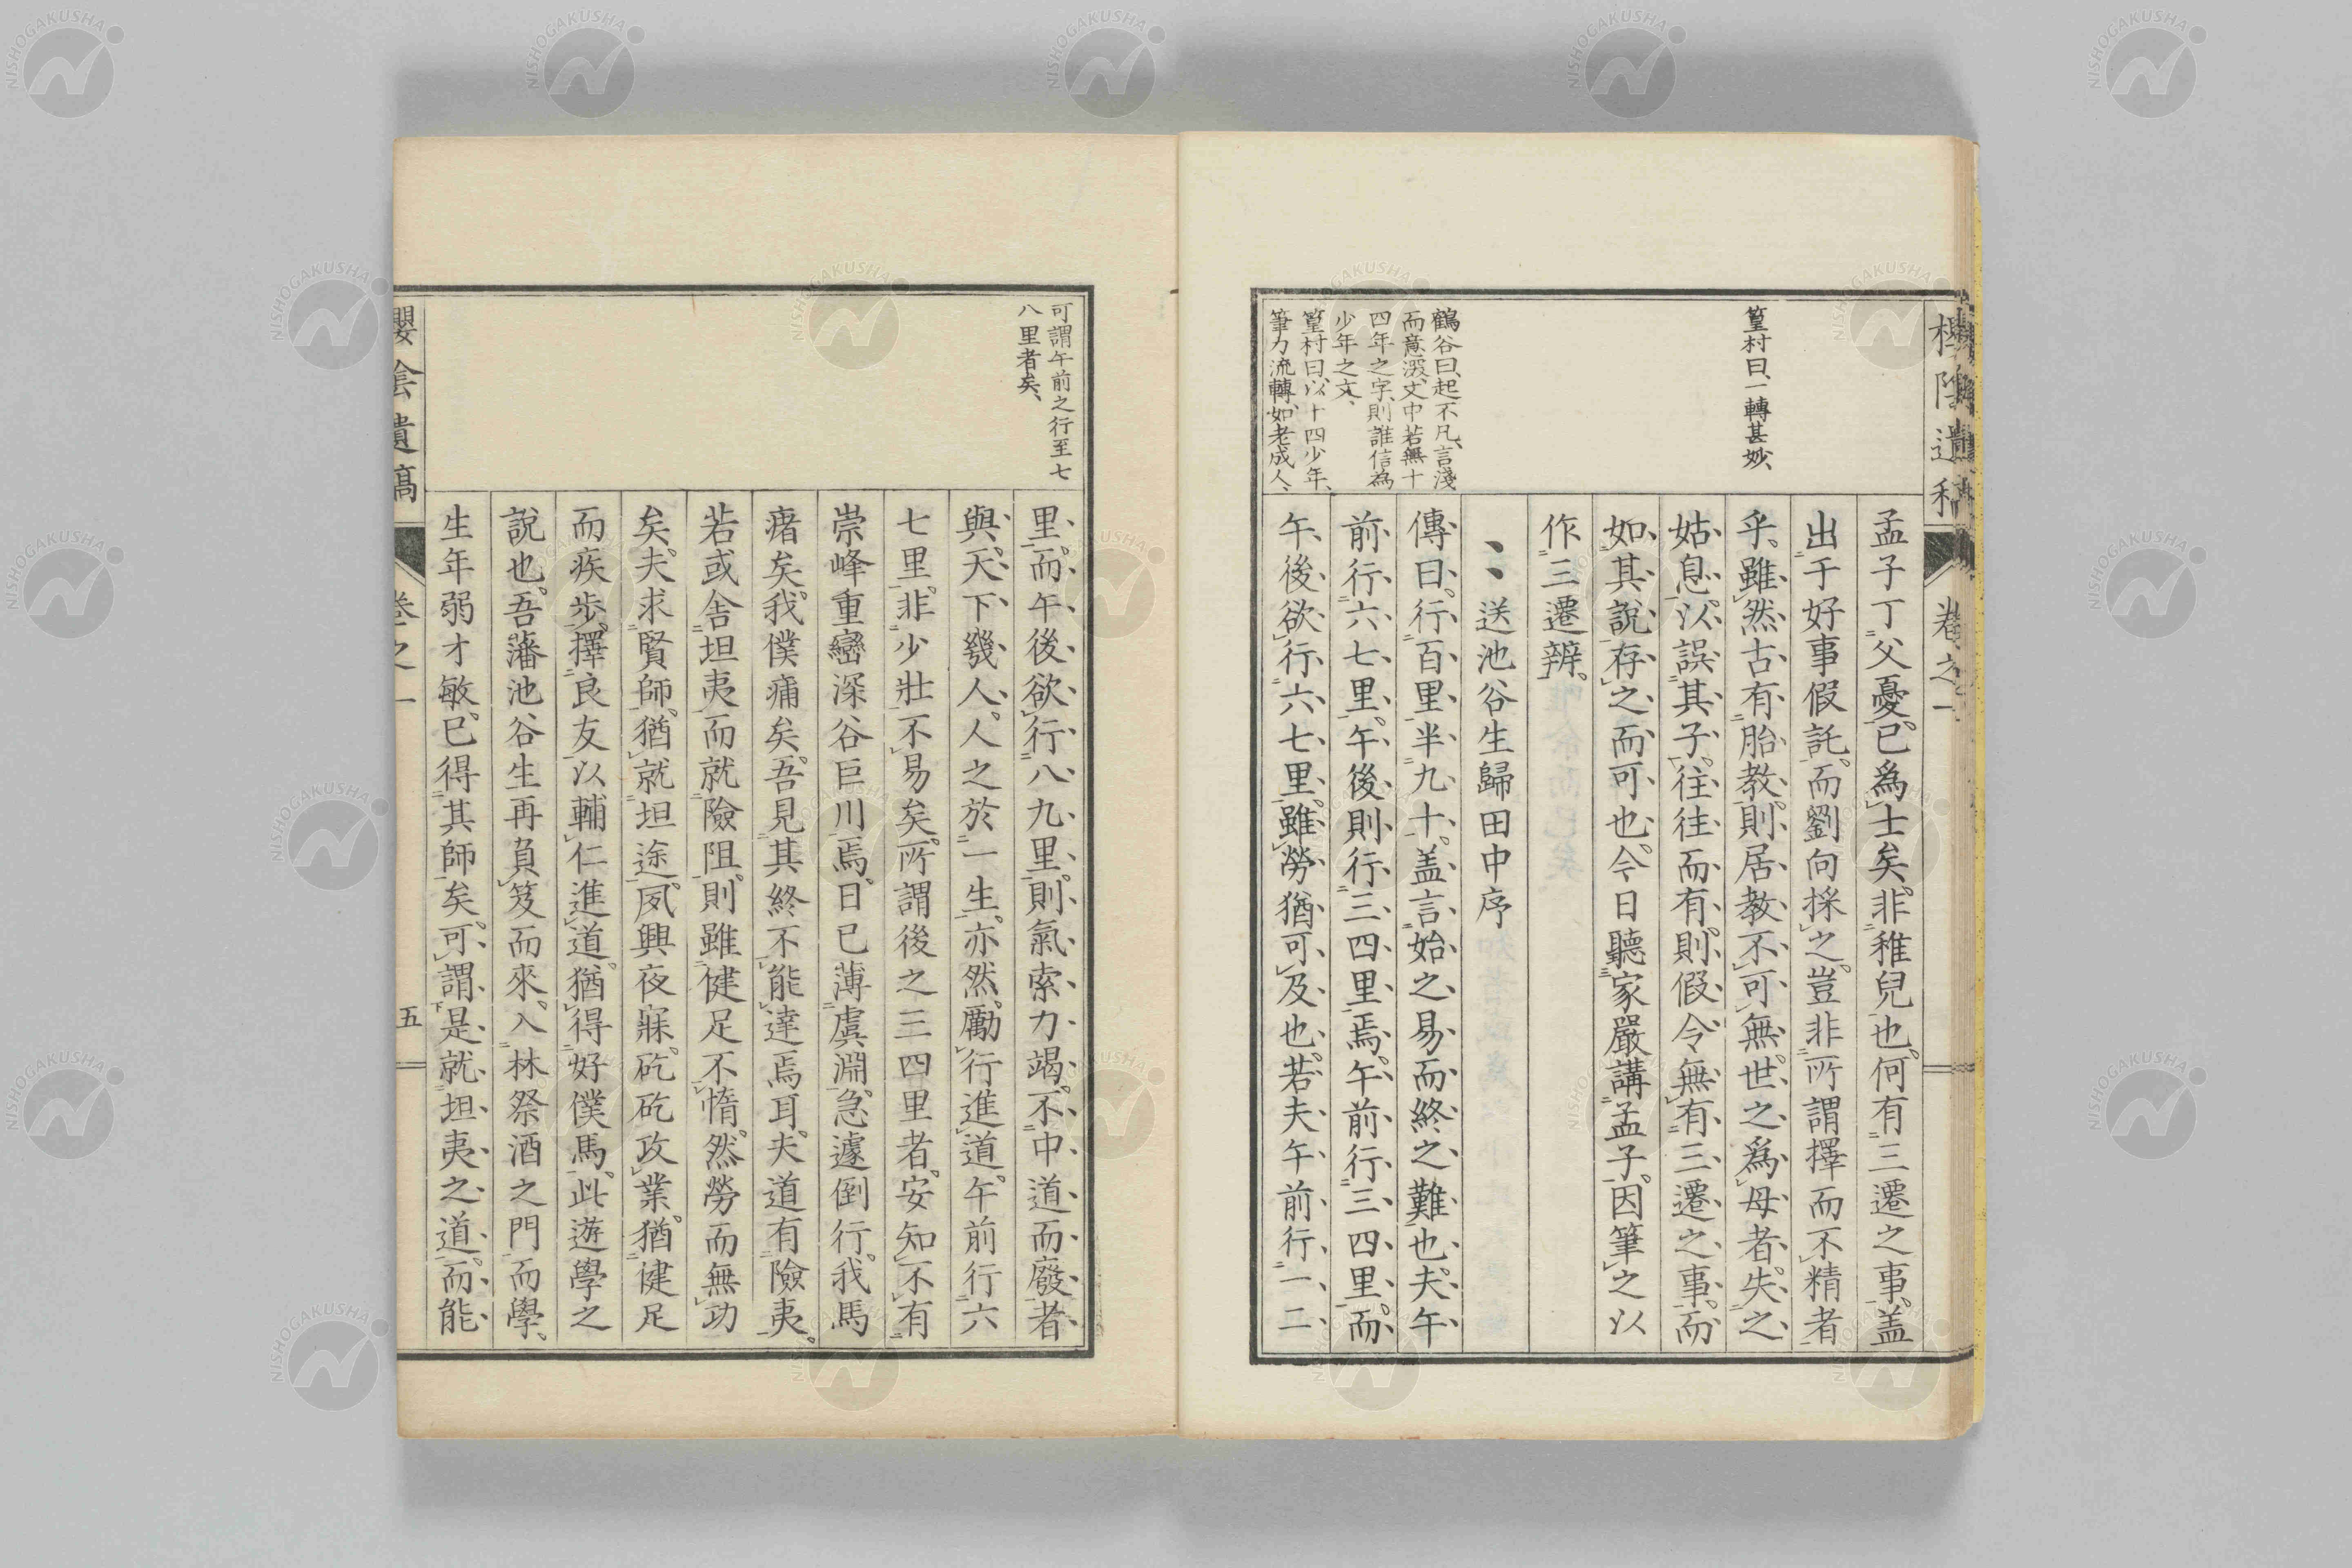 櫻陰遺稿
卷之一
篁村曰、一轉甚妙、
孟子丁父憂、已爲士矣。非稚兒也。何有三遷之事。盖
出于好事假託。而劉向採之。豈非所謂擇而不精者
乎。雖然古有胎教。則居教不可無。世之爲母者。失之
姑息。以誤其子。往往而有。則假令無有三遷之事。而
如其說存之而可也。今日聽家嚴講孟子。因筆之以
作三遷辨。
送池谷生歸田中序
鶴谷曰、起不凡、言淺
而意深、文中若無十
四年之字、則誰信為
少年之文、
篁村曰、以十四少年、
筆力流轉、如老成人、
傳曰。行百里半九十。盖言始之易而終之難也。夫午
前行六七里。午後則行三四里焉。午前行三四里。而
午後欲行六七里。雖勞猶可及也。若夫午前行一二
可謂午前之行至七
八里者矣、
里。而午後欲行八九里。則氣索力竭。不中道而廢者
與。天下幾人。人之於一生。亦然。勵行進道。午前行六
七里。非少壯不易矣。所謂後之三四里者。安知不有
崇峰重巒深谷巨川焉。日已薄虞淵。急遽倒行。我馬
瘏矣。我僕痡矣。吾見其終不能達焉耳。夫道有險夷。
若或舍坦夷而就險阻。則雖健足不惰。然勞而無功
矣。夫求賢師。猶就坦途。夙興夜寐。矻矻攻業。猶健足
而疾步。擇良友以輔仁進道。猶得好僕馬。此遊學之
說也。吾藩池谷生再負笈而來。入林祭酒之門而學。
生年弱才敏。已得其師矣。可謂是就坦夷之道。而能
櫻陰遺稿
卷之一
五